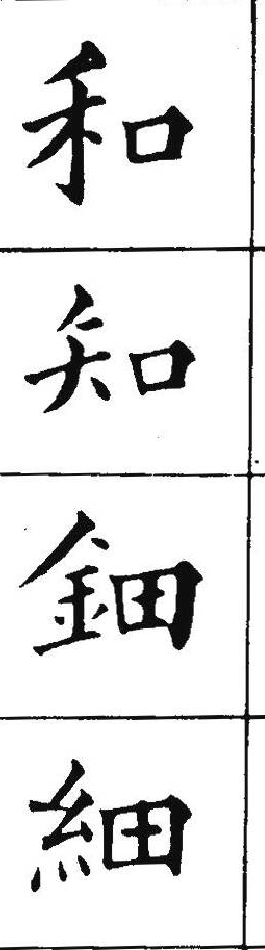 和
知
鈿
細